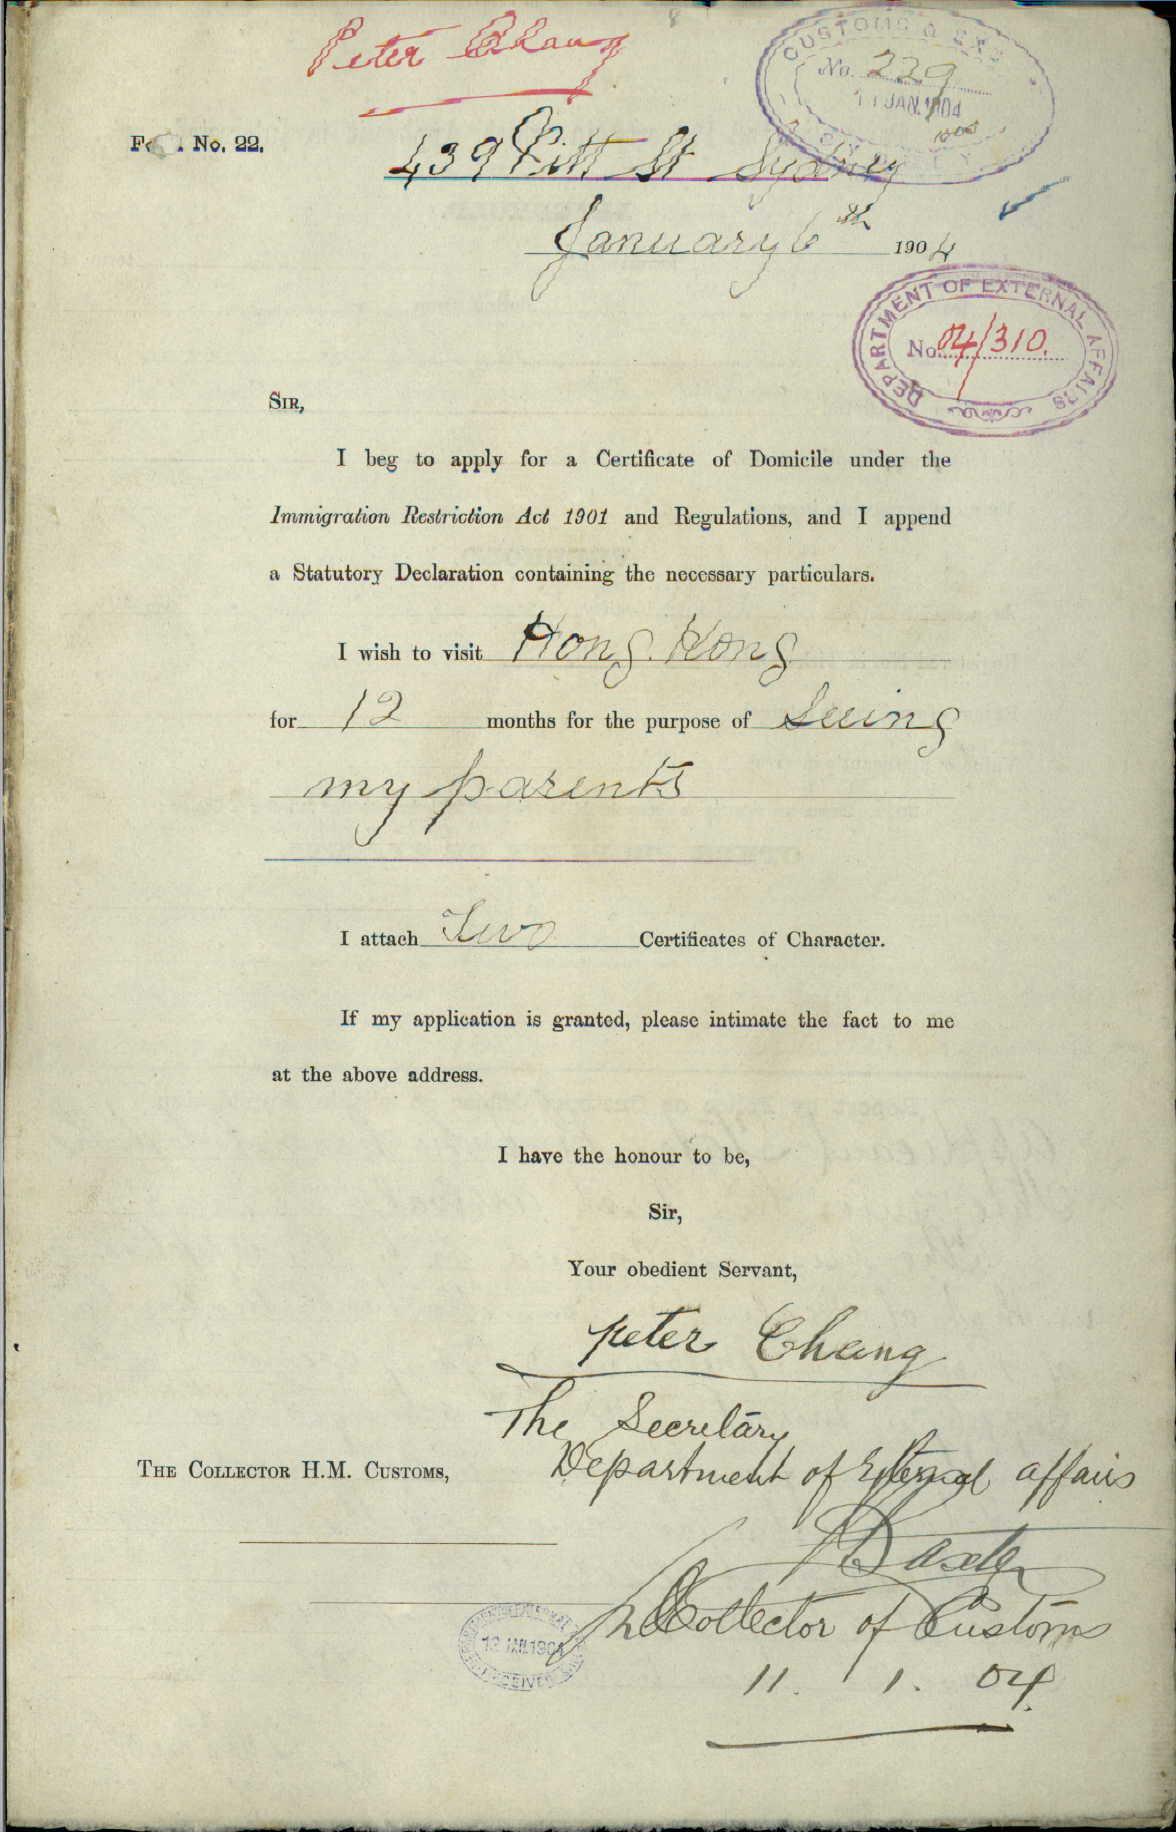 Peter Chang
CUSTOMS & EXC
No. 229
11 JAN. 1904
Form No. 22.
439 Pitt St Sydney
January 6th 1904
DEPARTMENT OF EXTERNAL AFFAIRS
No. 04/310.
SIR,
I beg to apply for a Certificate of Domicile under the
Immigration Restriction Act 1901 and Regulations, and I append
a Statutory Declaration containing the necessary particulars.
I wish to visit Hong Kong
for 12 months for the purpose of Seeing
my parents
I attach Two Certificates of Character.
If my application is granted, please intimate the fact to me
at the above address.
I have the honour to be,
Sir,
Your obedient Servant,
Peter Chang
The Secretary
Department of External affairs
THE COLLECTOR H.M. CUSTOMS,
Baxter
Collector of Customs
12 JAN. 1904
RECEIVED
11. 1. 04.